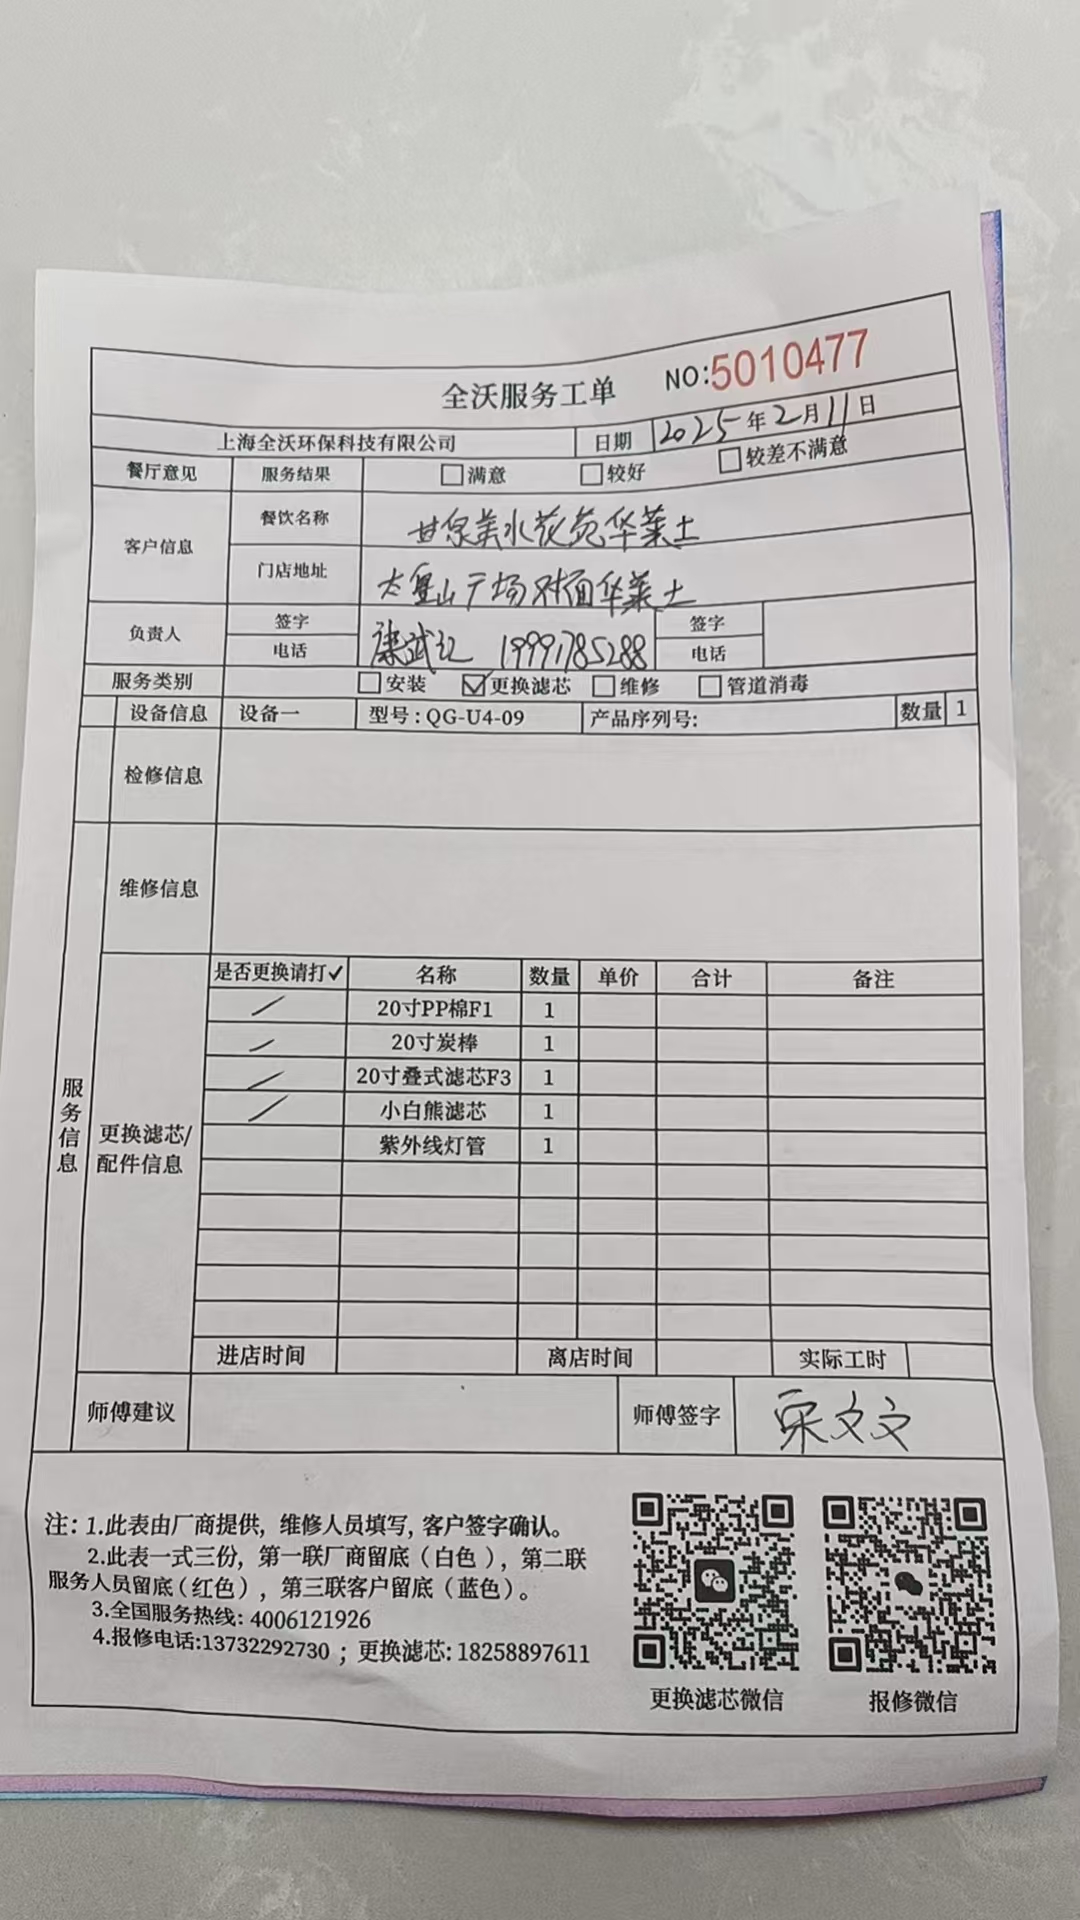 全沃服务工单
NO:5010477
上海全沃环保科技有限公司 日期 2025年2月11日
餐厅意见 服务结果 □满意 □较好 □较差不满意
客户信息 餐饮名称 甘泉美水花苑华莱士
门店地址 太皇山广场对面华莱士
负责人 签字 签字
电话 19991785288 电话
服务类别 □安装 ☑更换滤芯 □维修 □管道消毒
设备信息 设备一 型号:QG-U4-09 产品序列号: 数量 1
检修信息
维修信息
服务信息
更换滤芯/
配件信息
是否更换请打✓ 名称 数量 单价 合计 备注
/ 20寸PP棉F1 1
/ 20寸炭棒 1
/ 20寸叠式滤芯F3 1
/ 小白熊滤芯 1
紫外线灯管 1
进店时间 离店时间 实际工时
师傅建议 师傅签字 栗文文
注: 1.此表由厂商提供, 维修人员填写, 客户签字确认。
2.此表一式三份, 第一联厂商留底(白色), 第二联
服务人员留底(红色), 第三联客户留底(蓝色)。
3.全国服务热线: 4006121926
4.报修电话:13732292730 ; 更换滤芯: 18258897611
更换滤芯微信 报修微信